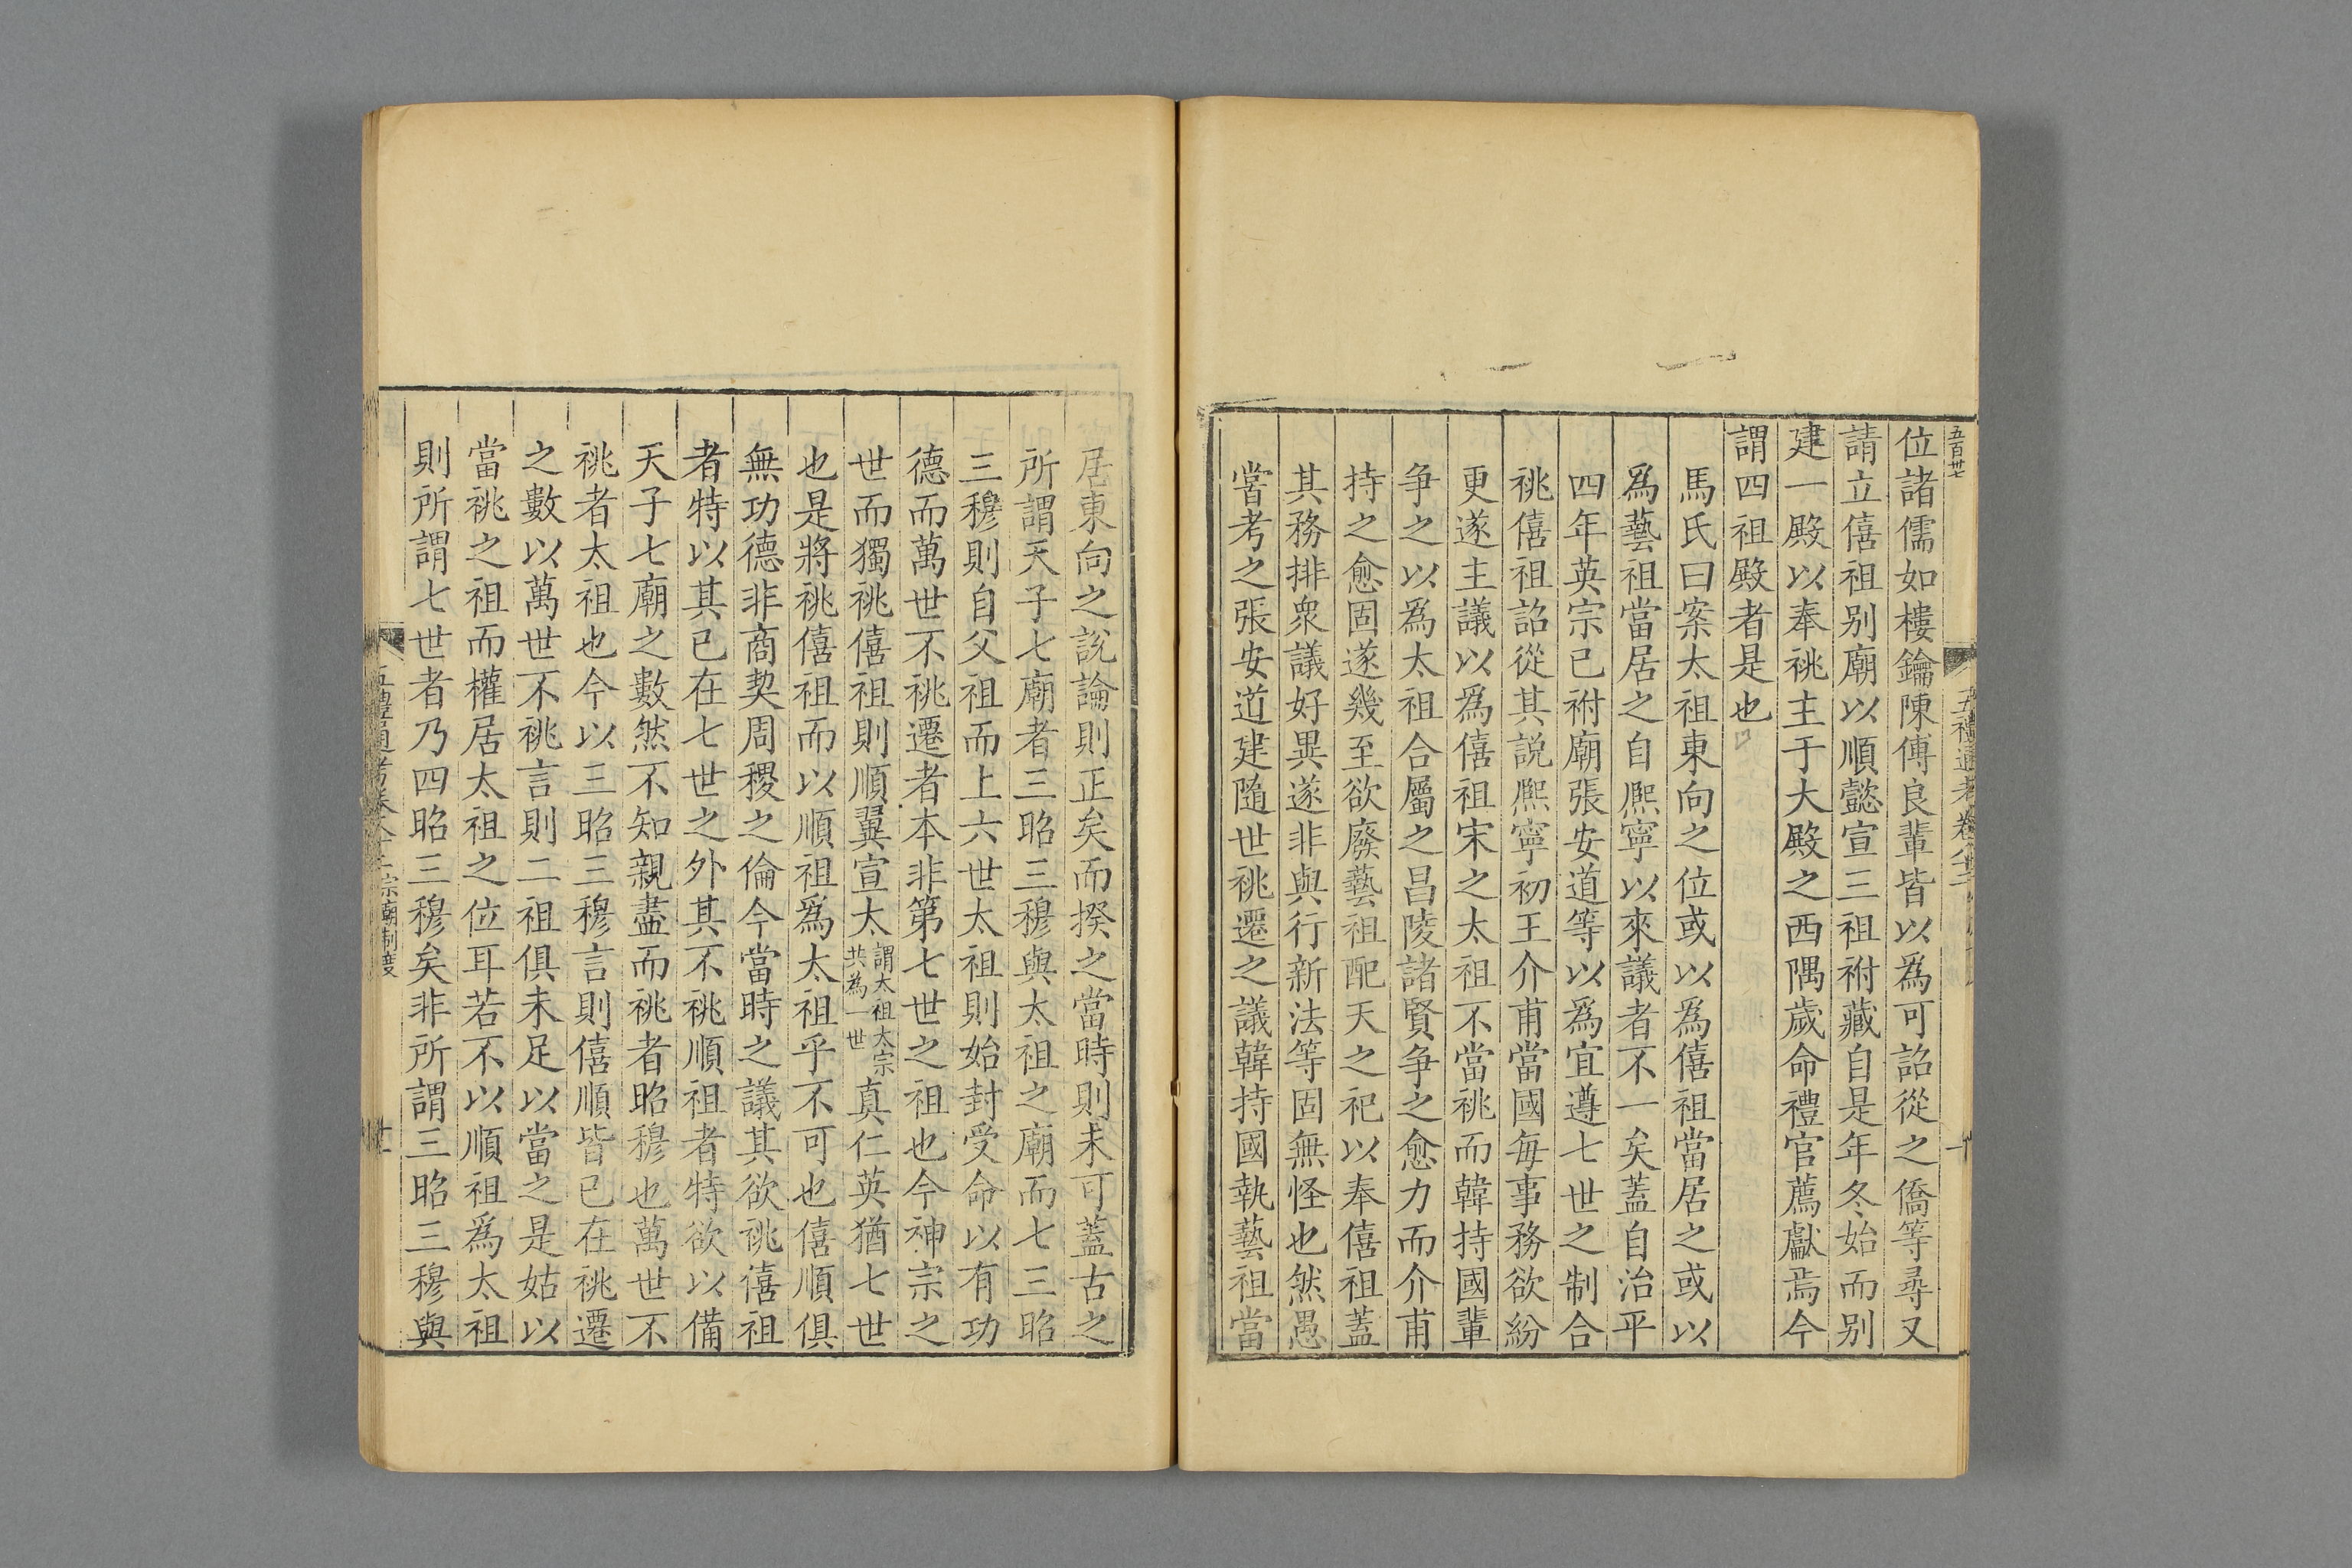 位諸儒如樓鑰陳傅良輩皆以爲可詔從之僑等尋又
請立僖祖别廟以順懿宣三祖祔藏自是年冬始而别
建一殿以奉祧主于大殿之西隅歲命禮官薦獻焉今
謂四祖殿者是也
馬氏曰案太祖東向之位或以爲僖祖當居之或以
爲藝祖當居之自熈寧以來議者不一矣蓋自治平
四年英宗已祔廟張安道等以爲宜遵七世之制合
祧僖祖詔從其説熈寧初王介甫當國每事務欲紛
更遂主議以爲僖祖宋之太祖不當祧而韓持國輩
争之以爲太祖合屬之昌陵諸賢争之愈力而介甫
持之愈固遂幾至欲廢藝祖配天之祀以奉僖祖蓋
其務排衆議好異遂非與行新法等固無怪也然愚
嘗考之張安道建隨世祧遷之議韓持國執藝祖當
居東向之說論則正矣而揆之當時則未可蓋古之
所謂天子七廟者三昭三穆與太祖之廟而七三昭
三穆則自父祖而上六世太祖則始封受命以有功
德而萬世不祧遷者本非第七世之祖也今神宗之
世而獨祧僖祖則順翼宣太謂太祖太宗共為一世真仁英猶七世
也是將祧僖祖而以順祖爲太祖乎不可也僖順俱
無功德非商契周稷之倫今當時之議其欲祧僖祖
者特以其已在七世之外其不祧順祖者特欲以備
天子七廟之數然不知親盡而祧者昭穆也萬世不
祧者太祖也今以三昭三穆言則僖順皆已在祧遷
之數以萬世不祧言則二祖俱未足以當之是姑以
當祧之祖而權居太祖之位耳若不以順祖爲太祖
則所謂七世者乃四昭三穆矣非所謂三昭三穆與
五禮通考卷八十二 宗廟制度